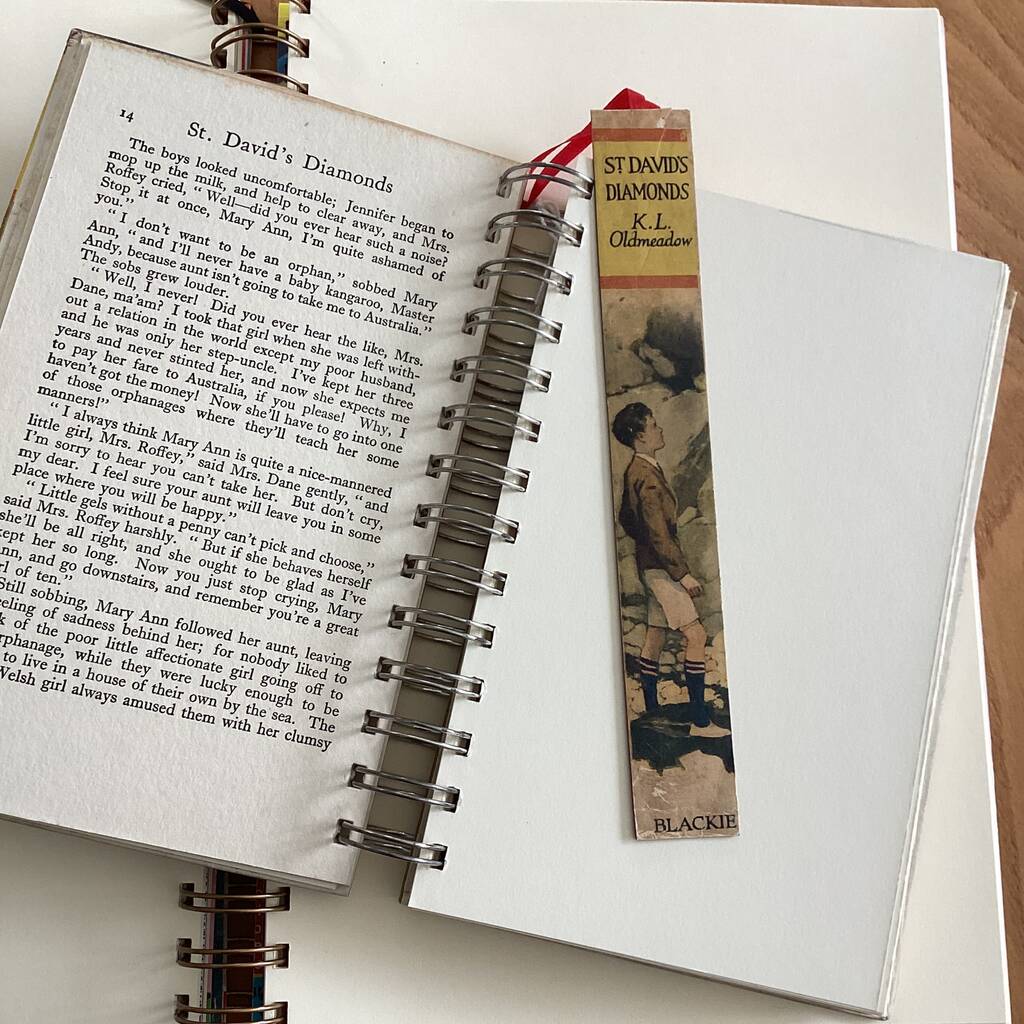 14
St. David's Diamonds
The boys looked uncomfortable; Jennifer began to
mop up the milk, and help to clear away, and Mrs.
Roffey cried, "Well—did you ever hear such a noise?
Stop it at once, Mary Ann, I'm quite ashamed of
you."
"I don't want to be an orphan," sobbed Mary
Ann, "and I'll never have a baby kangaroo, Master
Andy, because aunt isn't going to take me to Australia."
The sobs grew louder.
"Well, I never! Did you ever hear the like, Mrs.
Dane, ma'am? I took that girl when she was left with-
out a relation in the world except my poor husband,
and he was only her step-uncle. I've kept her three
years and never stinted her, and now she expects me
to pay her fare to Australia, if you please! Why, I
haven't got the money! Now she'll have to go into one
of those orphanages where they'll teach her some
manners!"
"I always think Mary Ann is quite a nice-mannered
little girl, Mrs. Roffey," said Mrs. Dane gently, "and
I'm sorry to hear you can't take her. But don't cry,
my dear. I feel sure your aunt will leave you in some
place where you will be happy."
"Little gels without a penny can't pick and choose,"
said Mrs. Roffey harshly. "But if she behaves herself
she'll be all right, and she ought to be glad as I've
kept her so long. Now you just stop crying, Mary
nn, and go downstairs, and remember you're a great
rl of ten."
Still sobbing, Mary Ann followed her aunt, leaving
eeling of sadness behind her; for nobody liked to
k of the poor little affectionate girl going off to
rphanage, while they were lucky enough to be
to live in a house of their own by the sea. The
Welsh girl always amused them with her clumsy
ST DAVID'S
DIAMONDS
K.L.
Oldmeadow
BLACKIE